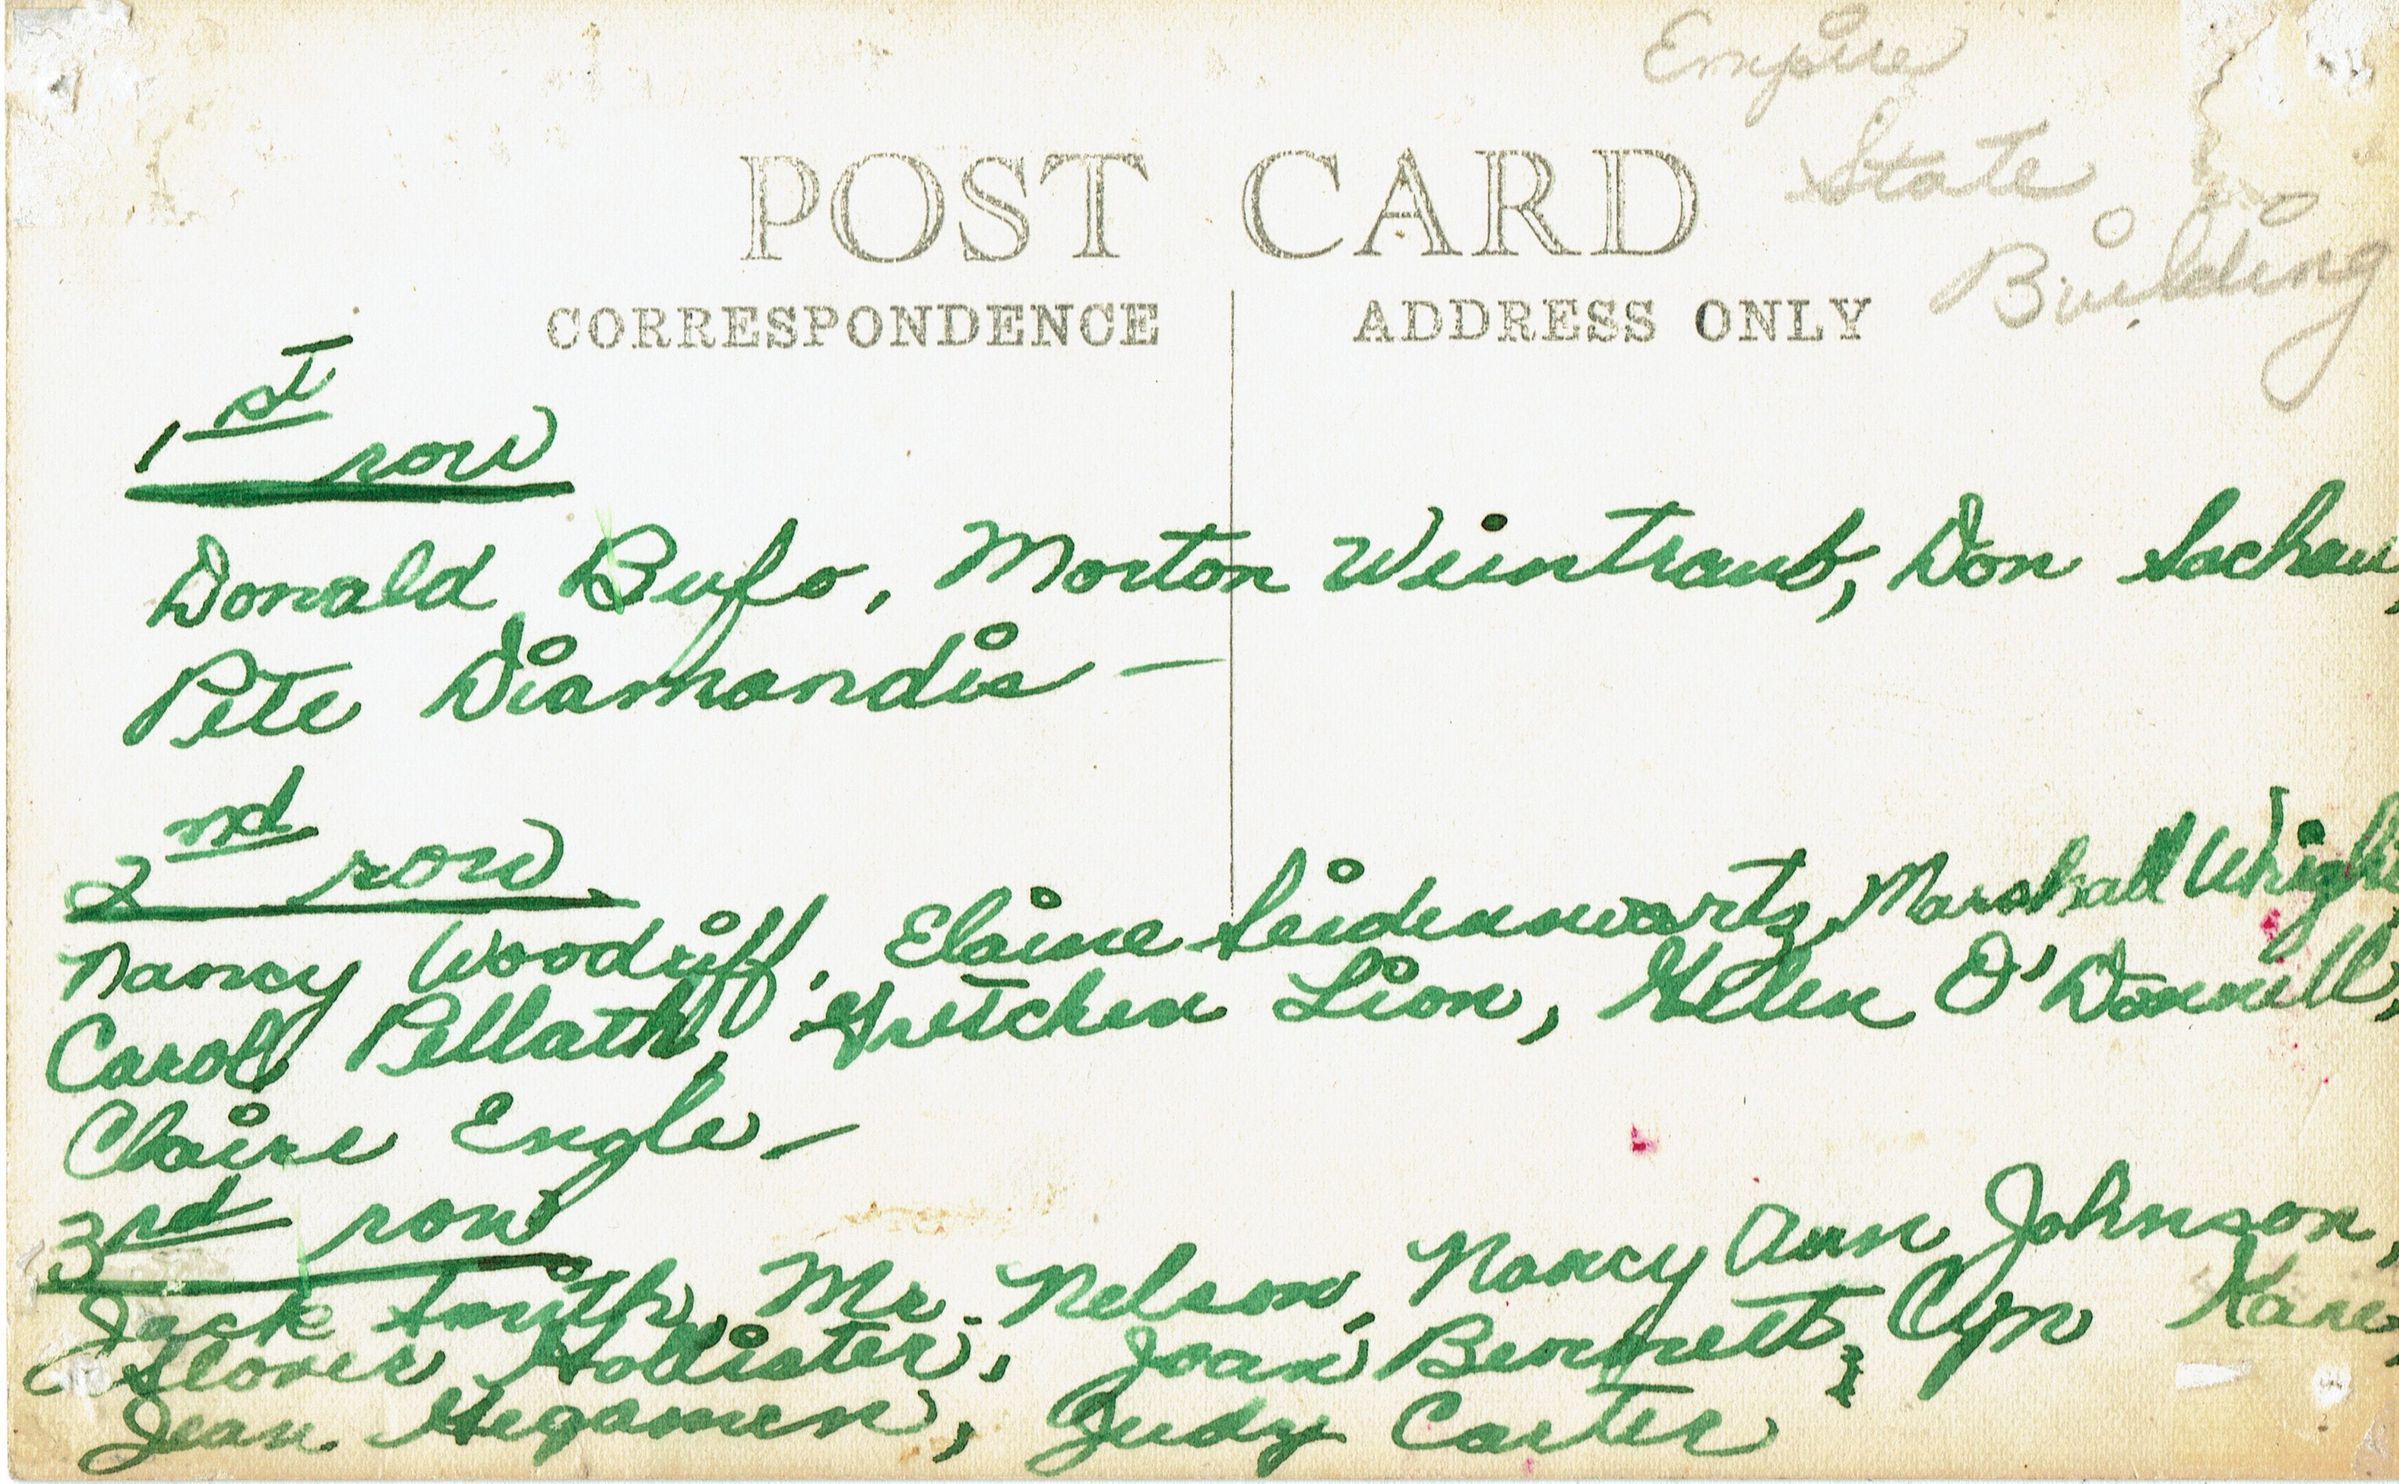 Empire
State
Building
POST CARD
CORRESPONDENCE ADDRESS ONLY
1st row
Donald Bufo, Morton Weintraub, Don Sachau,
Pete Diamandis —
2nd row
Nancy Woodriff, Elaine Seidenwartz, Marshall Wright,
Carol Pellath, Gretchen Lion, Helen O'Donnell,
Claire Engle —
3rd row
Jack Smith, Mr. Nelson, Nancy Ann Johnson,
Hollister, Joan Bennett, Cyn Kane,
Jean Hegamen, Judy Carter